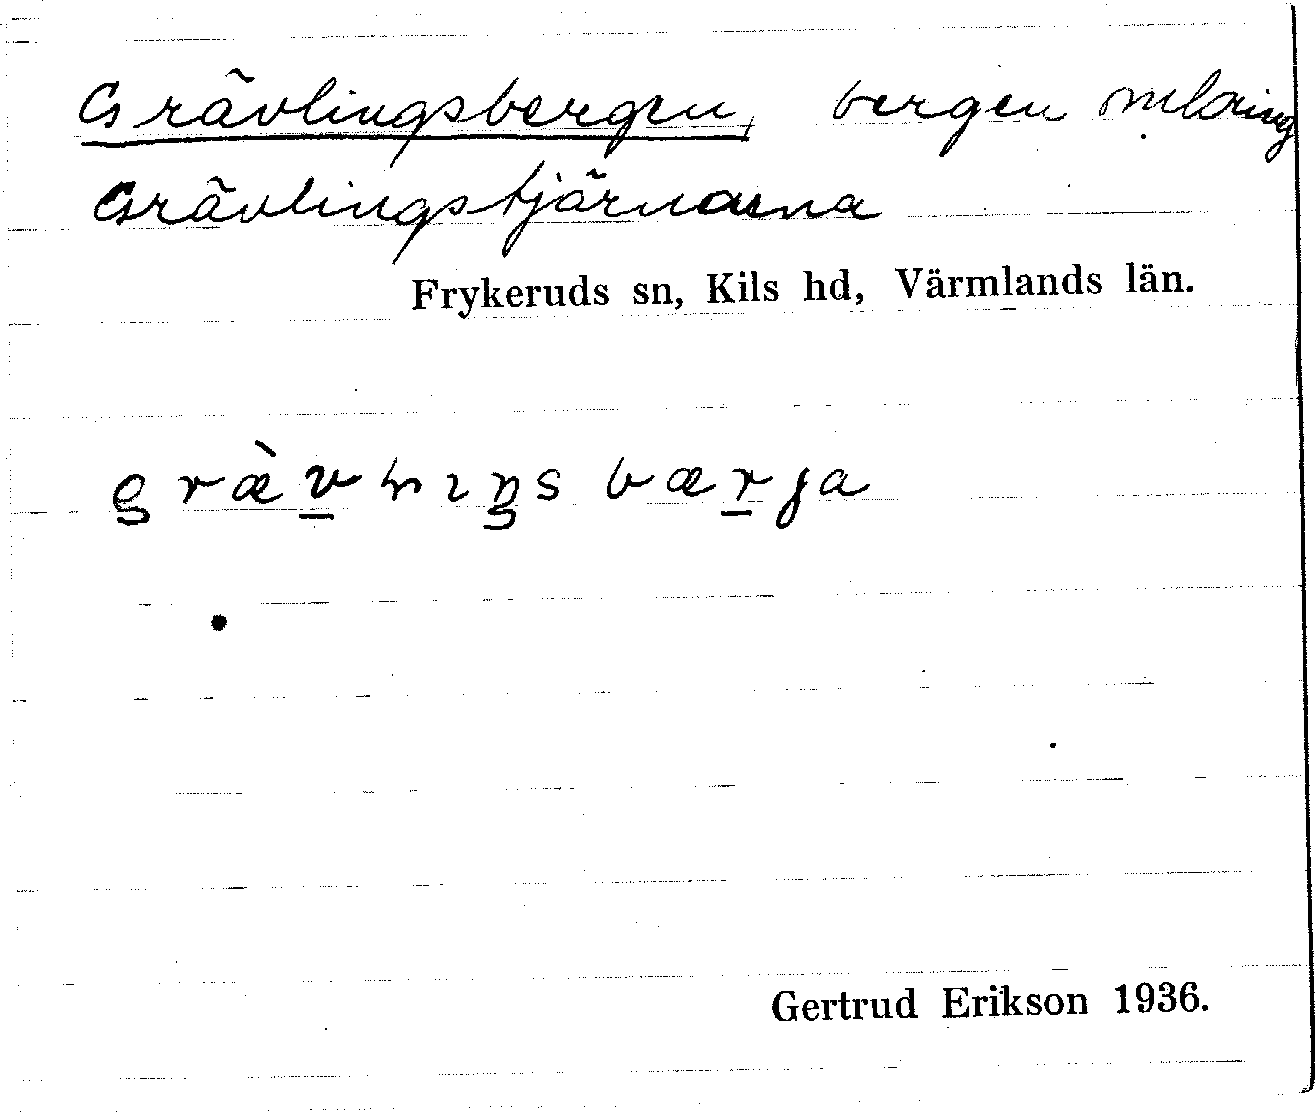 Grävlingsbergen, bergen omkring
Grävlingstjärnarna
Frykeruds sn, Kils hd, Värmlands län.
Gertrud Erikson 1936.